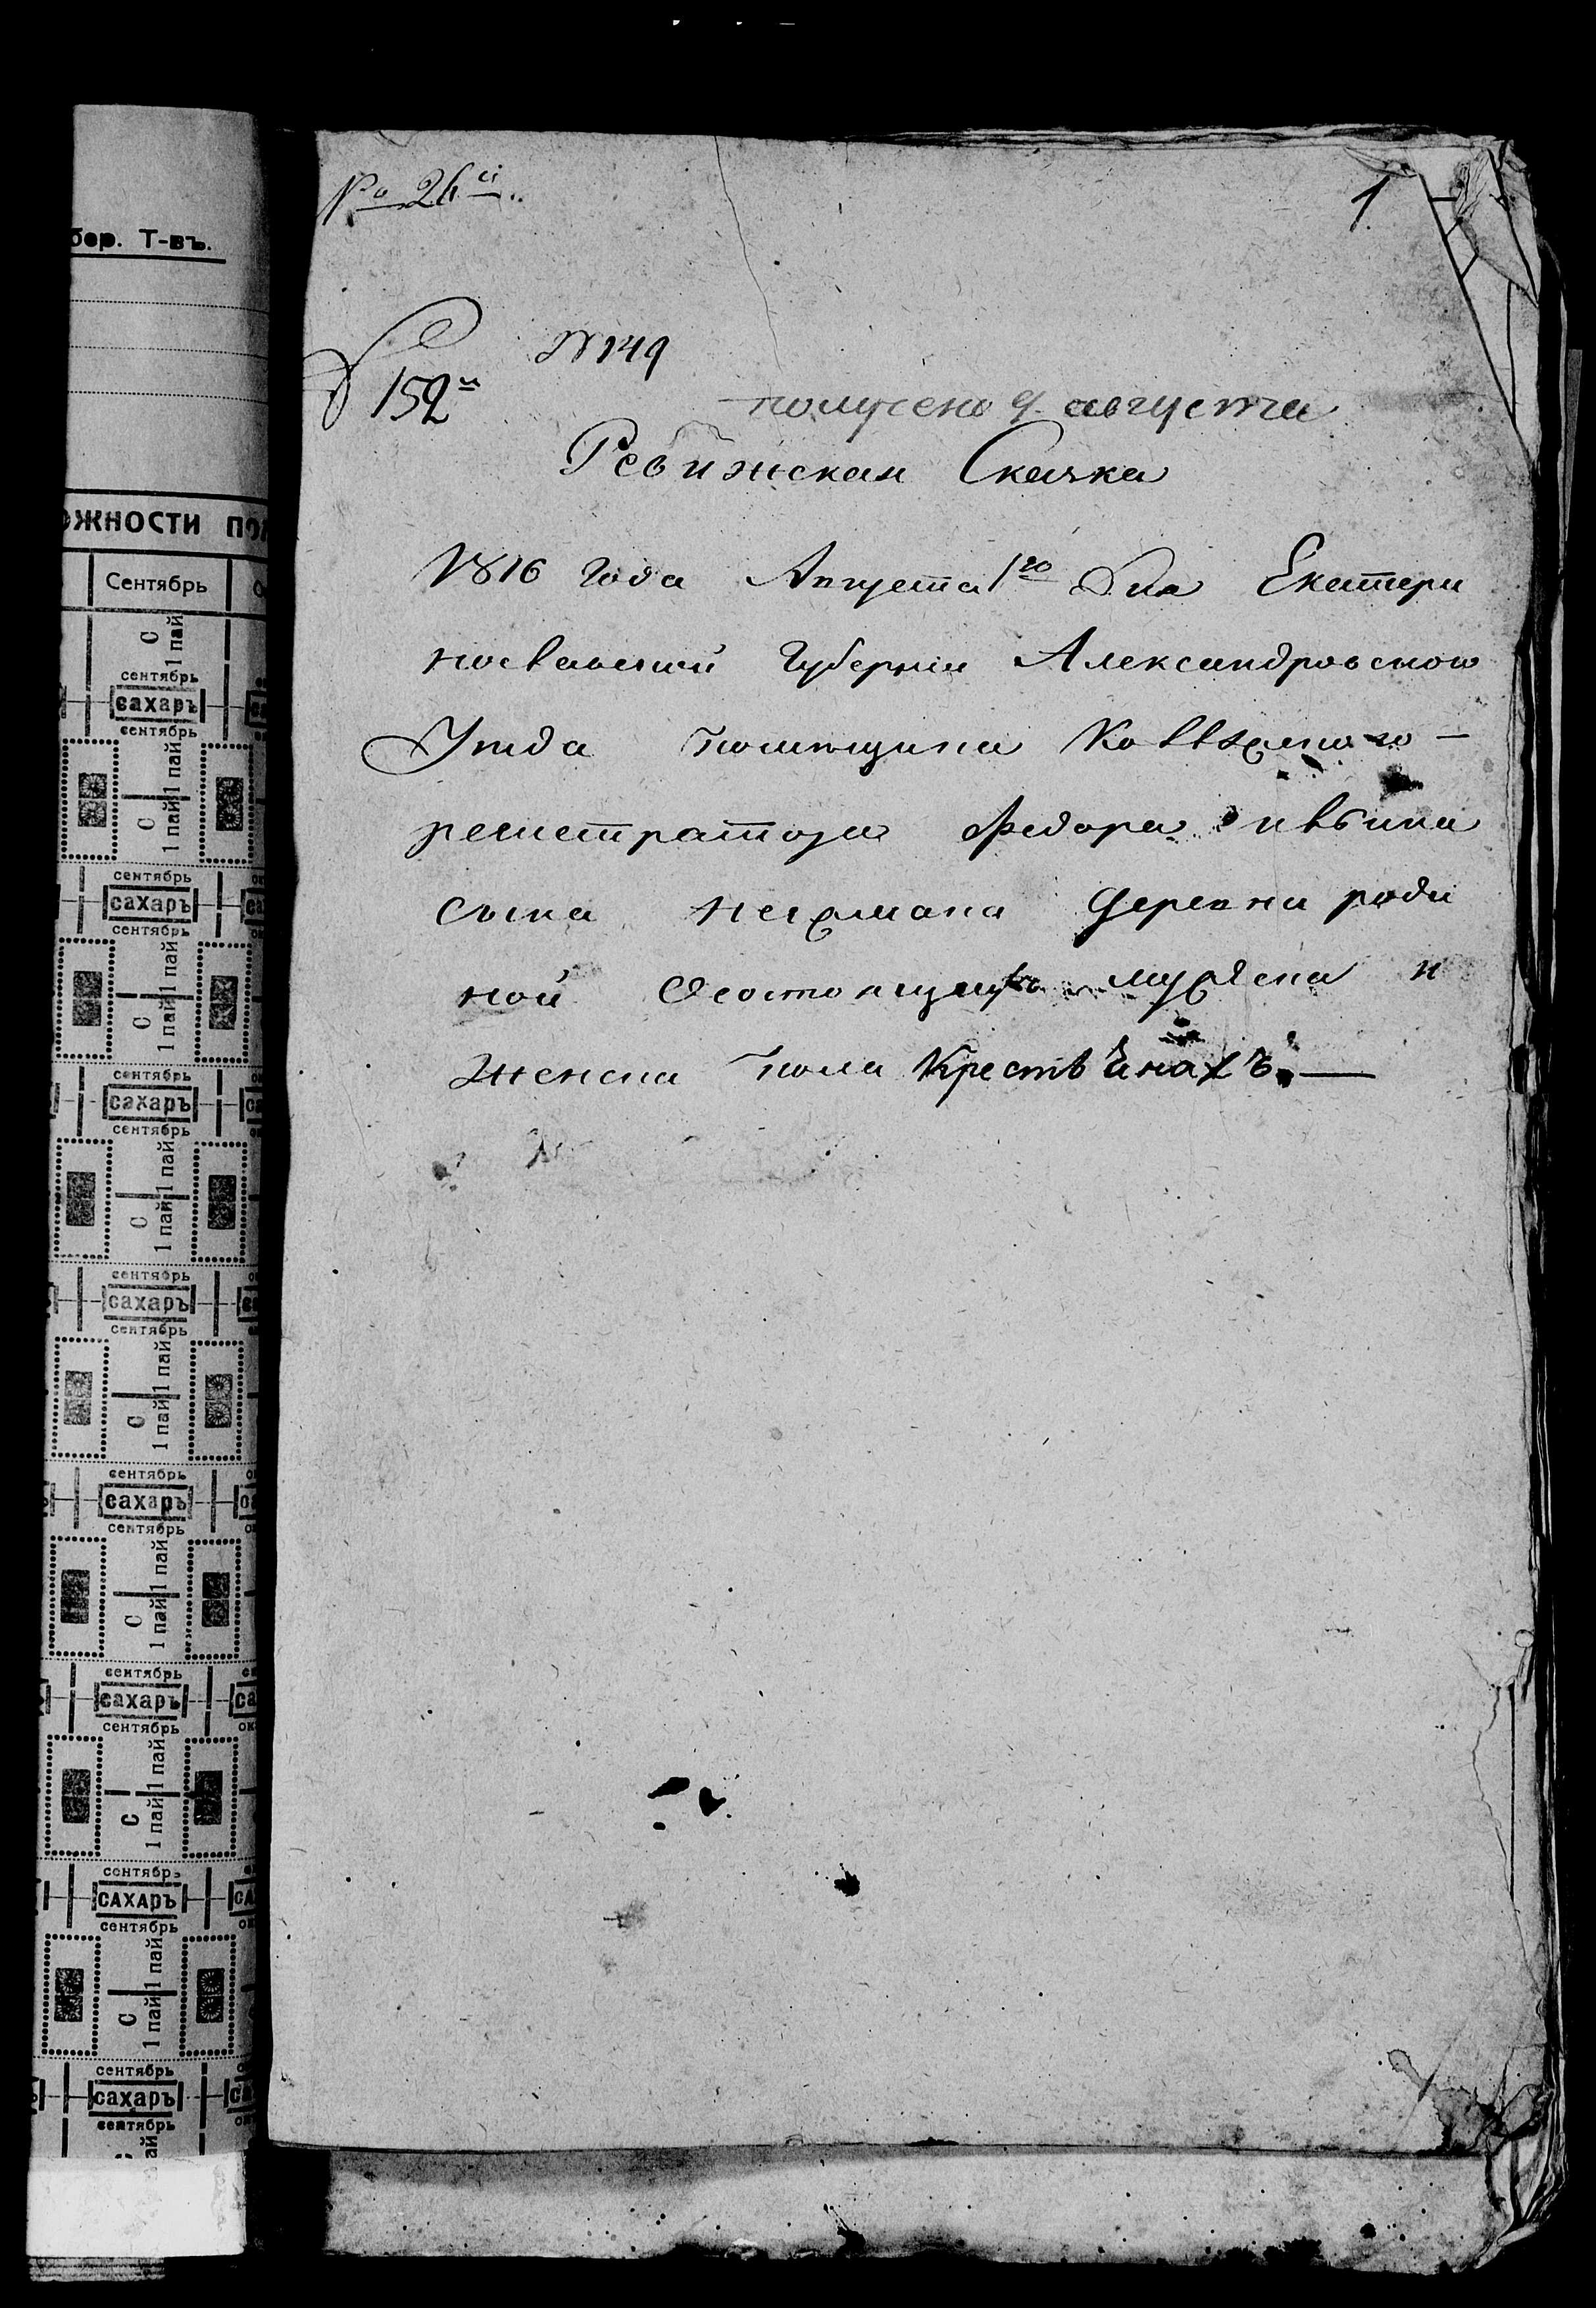 № 26й
1
№ 149
152й
получено 9 августа
Ревижская Скаска
1816 года Августа 1го дня Екатери
нославской Губернии Александровского
Уезда помещика
регистратора Федора
сына деревни роди
ной мужска и
женска пола Крестьянахъ
бер. Т-въ.
ожности по
Сентябрь
сентябрь
сахаръ
сентябрь
С
1 пай 1 пай
сентябрь
сахаръ
сентябрь
С
1 пай 1 пай
сентябрь
сахаръ
сентябрь
С
1 пай 1 пай
сентябрь
сахаръ
сентябрь
С
1 пай 1 пай
сентябрь
сахаръ
сентябрь
С
1 пай 1 пай
сентябрь
сахаръ
сентябрь
С
1 пай 1 пай
сентябрь
САХАРЪ
сентябрь
С
1 пай 1 пай
сентябрь
сахаръ
сентябрь